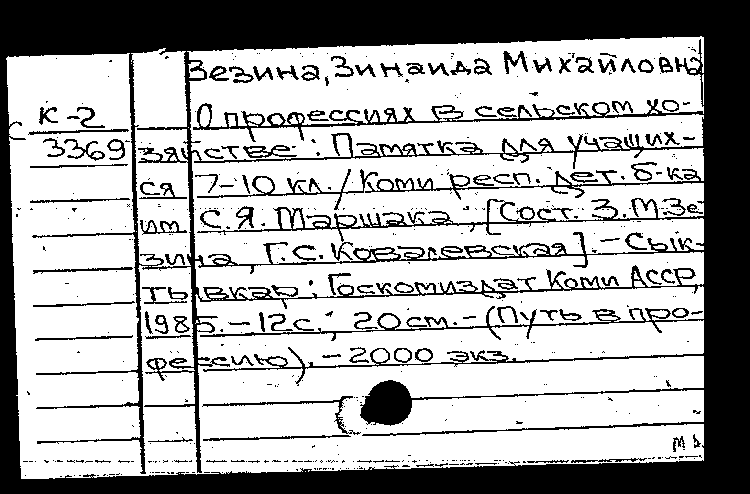 Зезина, Зинаида Михайловна
К-2
О профессиях в сельском хо-
С
3369
зяйстве : Памятка для учащих-
ся 7-10 кл. / Коми респ. дет. б-ка
им С.Я. Маршака ; [Сост. З.М.Зе
зина, Г.С. Ковалевская]. - Сык-
тывкар : Госкомиздат Коми АССР,
1985. - 12 с. ; 20 см. - (Путь в про-
фессию). - 2000 экз.